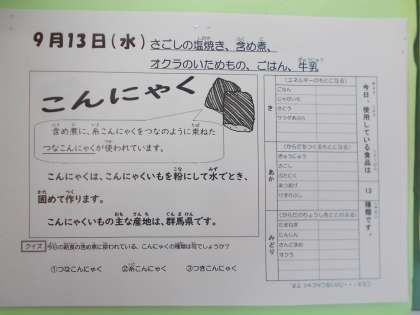 9月13日(水) さごしの塩焼き、含め煮、
オクラのいためもの、ごはん、牛乳
こんにゃく
含め煮に、糸こんにゃくをつなのように束ねた
つなこんにゃくが使われています。
こんにゃくは、こんにゃくいもを粉にして水でとき、
固めて作ります。
こんにゃくいもの主な産地は、群馬県です。
クイズ 今日の給食の含め煮に使われている、こんにゃくの種類は何でしょうか？
①つなこんにゃく ②糸こんにゃく ③つきこんにゃく
今日、使用している食品は 13 種類です。
き
(エネルギーのもとになる)
ごはん
じゃがいも
さとう
サラダあぶら
あか
(からだをつくるもとになる)
ぎゅうにゅう
さごし
ぶたにく
あつあげ
けずりぶし
みどり
(からだのちょうしをととのえる)
たまねぎ
にんじん
さんどまめ
オクラ